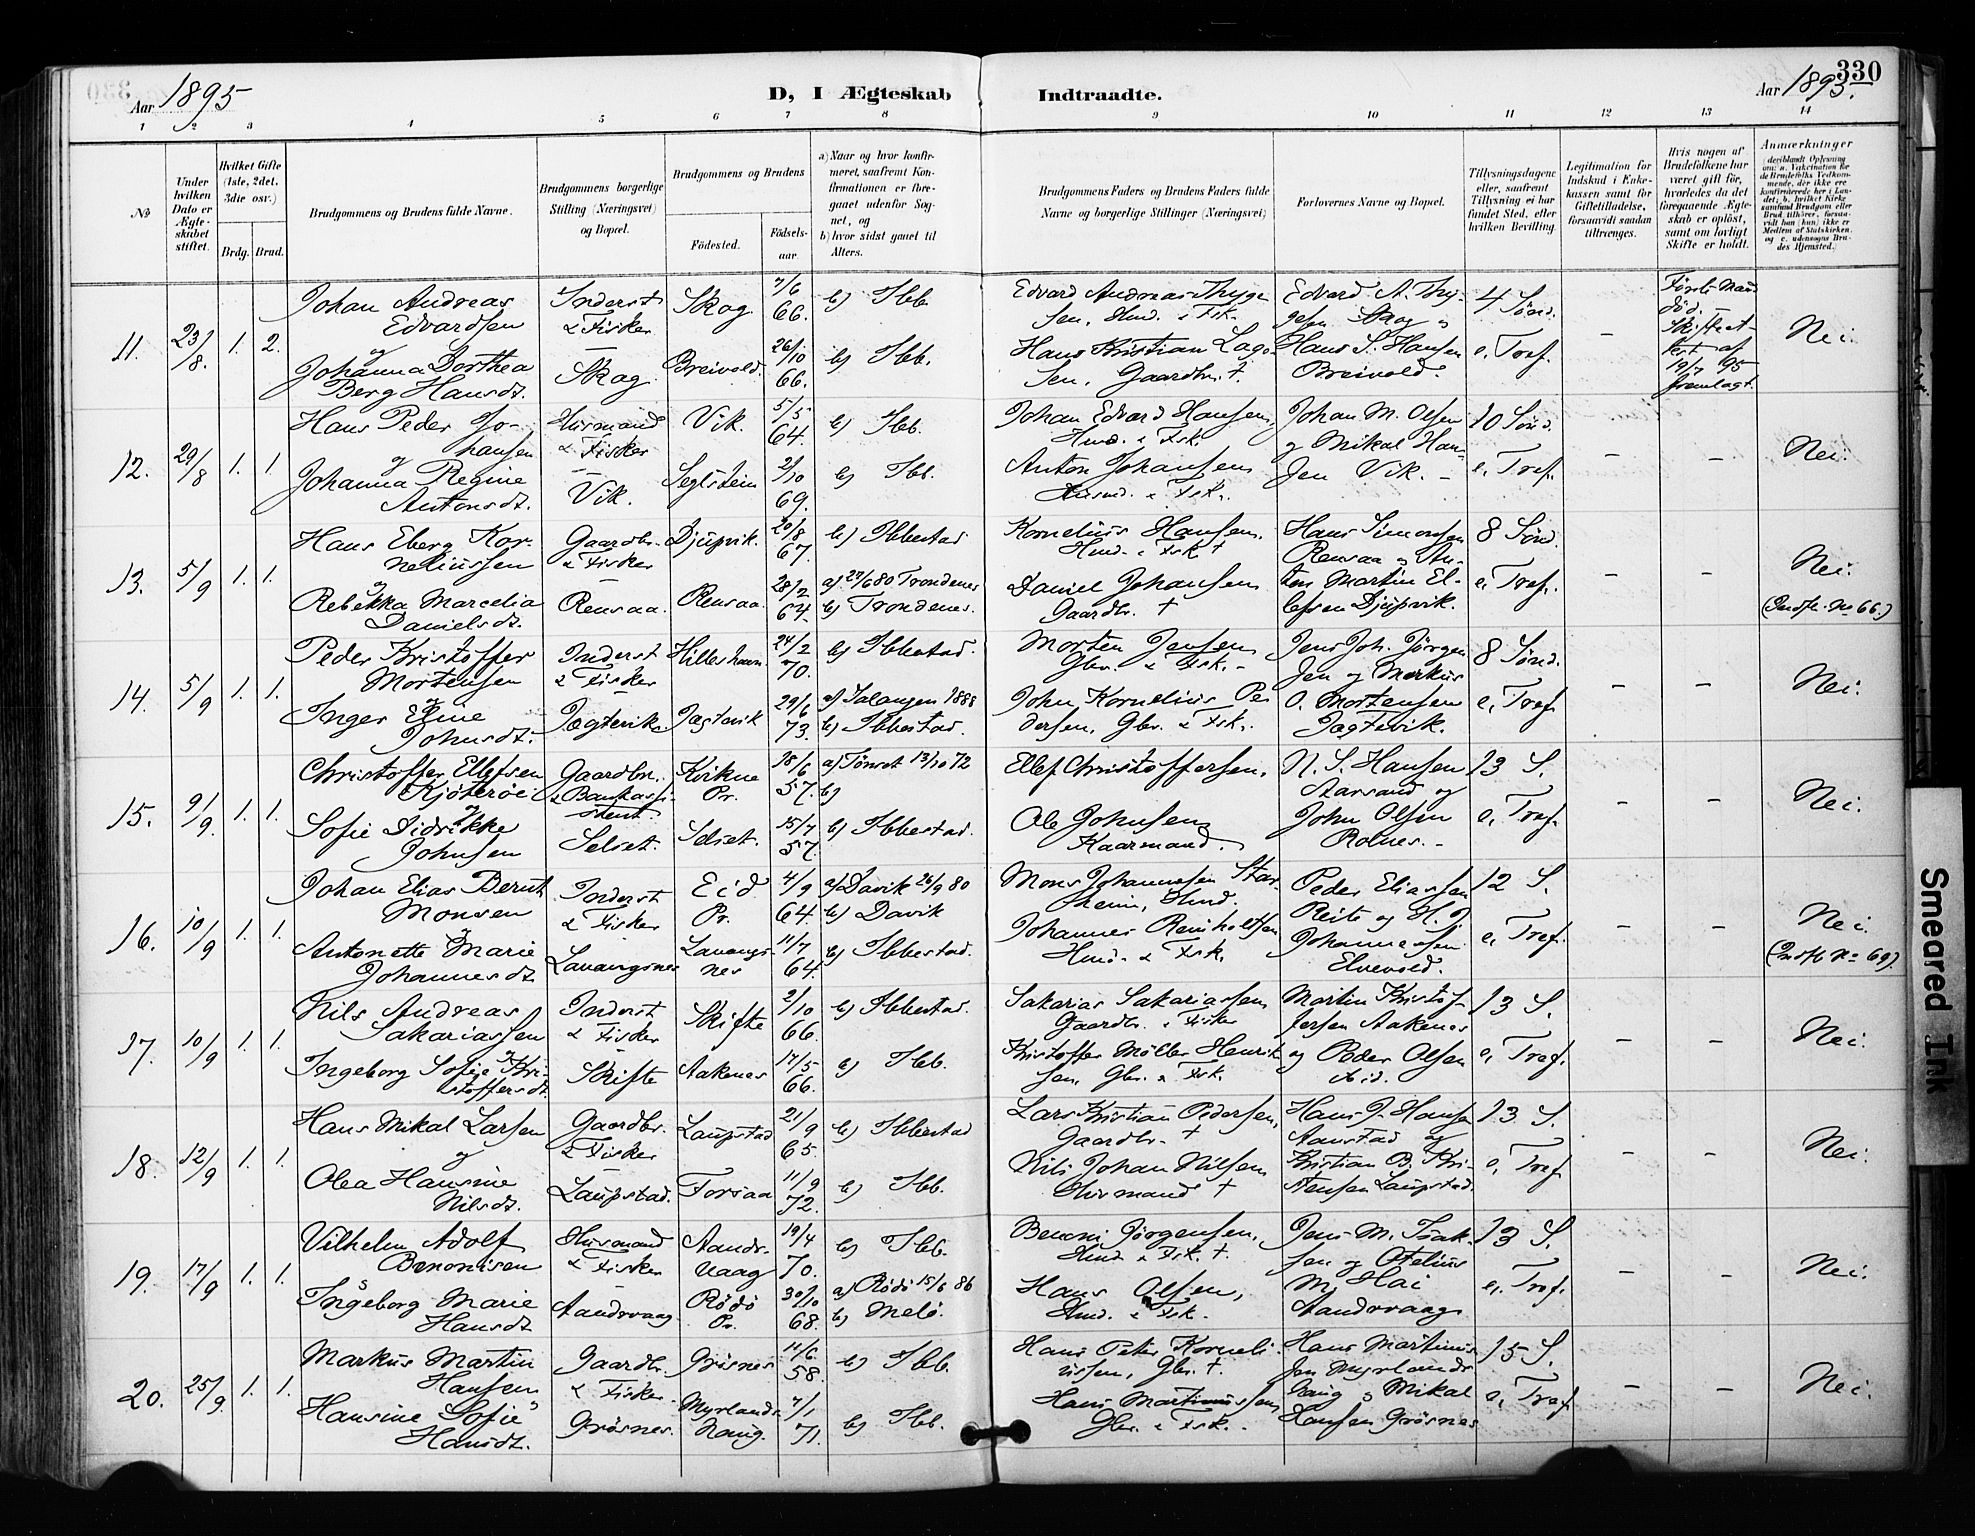 330
Aar 1895
D, I Ægteskab Indtraadte.
Aar 1895.
1 2 3 4 5 6 7 8 9 10 11 12 13 14
№
Under hvilken Dato er Ægteskabet stiftet.
Hvilket Gifte (1ste, 2det, 3die osv.)
Brdg. Brud.
Brudgommens og Brudens fulde Navne.
Brudgommens borgerlige Stilling (Næringsvei) og Bopæl.
Brudgommens og Brudens
Födested.
Födselsaar.
a) Naar og hvor konfirmeret, saafremt Konfirmationen er foregaaet udenfor Sognet, og
b) hvor sidst gaaet til Alters.
Brudgommens Faders og Brudens Faders fulde Navne og borgerlige Stillinger (Næringsvei)
Forlovernes Navne og Bopæl.
Tillysningsdagene eller, saafremt Tillysning ei har fundet Sted, efter hvilken Bevilling.
Legitimation for Indskud i Enkekassen samt for Giftetilladelse, forsaavidt saadan tiltrænges.
Hvis nogen af Brudefolkene har været gift för, hvorledes da det foregaaende Ægteskab er oplöst, samt om lovligt Skifte er holdt.
Anmærkninger
11. 23/8. 1. 2.
Johan Andreas Edvardsen
og
Johanna Dorthea Berg Hansdt.
Inderst & Fisker
Skog
Skog. 7/6 66. b) Ibb.
Breivold. 26/10 66. b) Ibb.
Edvard Andreas Thygesen, Hmd. & Fsk.
Hans Kristian Lagesen, Gaardbr. †.
Edvard A. Thygesen Skog og
Hans S. Hansen Breivold.
4 Sönd. e. Tref.
–
Förste Mand död. – Skifteattest af 19/7 95 fremlagt.
Nei.
12. 29/8 1. 1
Hans Peder Johansen
og
Johanna Regine Antonsdt.
Husmand & Fisker
Vik.
Vik. 5/5 64. b) Ibb.
Seglstein 2/10 69. b) Ibb.
Johan Edvard Hansen, Hmd. & Fsk.
Anton Johansen Husmd. & Fsk.
Johan M. Olsen og Mikal Hansen Vik. –
10 Sönd. e. Tref.
– – Nei.
13. 5/9 1. 1.
Hans Eberg Korneliussen
og
Rebekka Marcelia Danielsdt.
Gaardbr. & Fisker
Rensaa.
Djupvik. 20/8 67. b) Ibbestad
Rensaa. 28/2 64. a) 27/6 80 Trondenes b) Trondenes.
Kornelius Hansen, Hmd. & Fsk †
Daniel Johansen Gaardbr. †
Hans Simonsen Rensaa og Anton Martin Ellefsen Djupvik.
8 Sönd. e. Tref.
– – Nei.
(Indfl. No 66.)
14. 5/9 1. 1.
Peder Kristoffer Mortensen
og
Inger Eline Johnsdt.
Inderst & Fisker
Jægtevik
Hilleshavn 24/2 70. b) Ibbestad.
Jægtevik 29/6 73. a) Salangen 1888 b) Ibbestad.
Morten Jensen Gbr. & Fsk. –
John Kornelius Pedersen, Gbr. & Fsk.
Jens Joh. Jörgensen og Markus O. Mortensen Jægtevik.
8 Sönd. e. Tref.
– – Nei.
15. 9/9. 1. 1.
Christoffer Ellefsen Kjöteröe
og
Sofie Didrikke Johnsen
Gaardbr. & Bankassistent
Selset.
Kvikne Pr. 18/6 57. a) Tönset 13/10 72 b)
Selset. 15/7 57. b) Ibbestad.
Ellef Christoffersen.
Ole Johnsen Kaarmand.
N. S. Hansen Starsand og John Olsen Rolnes. –
13 S. e. Tref.
– – Nei.
16. 10/9 1. 1.
Johan Elias Bernt Monsen
og
Antonette Marie Johannesdt
Inderst & Fisker
Lavangsnes
Eid Pr. 4/9 64. a) Davik 26/9 80 b) Davik
Lavangsnes 11/7 64. b) Ibbestad.
Mons Johannesen Starheim, Hmd.
Johannes Reinholtsen Hmd. & Fsk.
Peder Eliassen Reite og H. J. Johannessen Elvevold.
12 S. e. Tref.
– – Nei.
(Indfl. No 69).
17. 10/9 1. 1.
Nils Andreas Sakariassen
og
Ingeborg Sofie Kristoffersdt.
Inderst & Fisker
Skifte
Skifte 2/10 66. b) Ibbestad.
Aakenes 17/5 66. b) Ibb.
Sakarias Sakariassen Gaardbr. & Fisker
Kristoffer Möller Henriksen, Gbr. & Fsk.
Martin Kristoffersen Aakenes og Peder Olsen ibid.
13 S. e. Tref.
– – Nei.
18. 12/9 1. 1.
Hans Mikal Larsen
og
Olea Hansine Nilsdt.
Gaardbr. & Fisker
Laupstad.
Laupstad 21/9 65. b) Ibbestad
Forsaa 11/9 72. b) Ibb.
Lars Kristian Pedersen, Gaardbr. †
Nils Johan Nilsen Husmand †
Hans J. Hansen Aanstad og Kristian B. Kristensen Laupstad.
13 S. e. Tref.
– – Nei.
19. 17/9 1. 1.
Vilhelm Adolf Benonisen
og
Ingeborg Marie Hansdt
Husmand & Fisker
Aandervaag
Aandervaag 19/4 70. b) Ibb.
Rödö Pr. 30/10 68. a) Rödö 15/6 86 b) Melö.
Benoni Jörgensen, Hmd. & Fsk. †.
Hans Olsen, Hmd. & Fsk.
Jens M. Isaksen og Otelius M. Hai Aandervaag.
13 S. e. Tref.
– – Nei.
20. 25/9. 1. 1.
Markus Martin Hansen
og
Hansine Sofie Hansdt.
Gaardbr. & Fisker
Grösnes.
Grösnes 11/6 58. b) Ibb.
Myrlandshaug. 7/1 71. b) Ibb.
Hans Peter Korneliussen, Gbr. †
Hans Martinussen Gbr. & Fsk.
Hans Martinussen Myrlandshaug og Mikal Hansen Grösnes
15 S. e. Tref.
– – Nei.
Smeared Ink